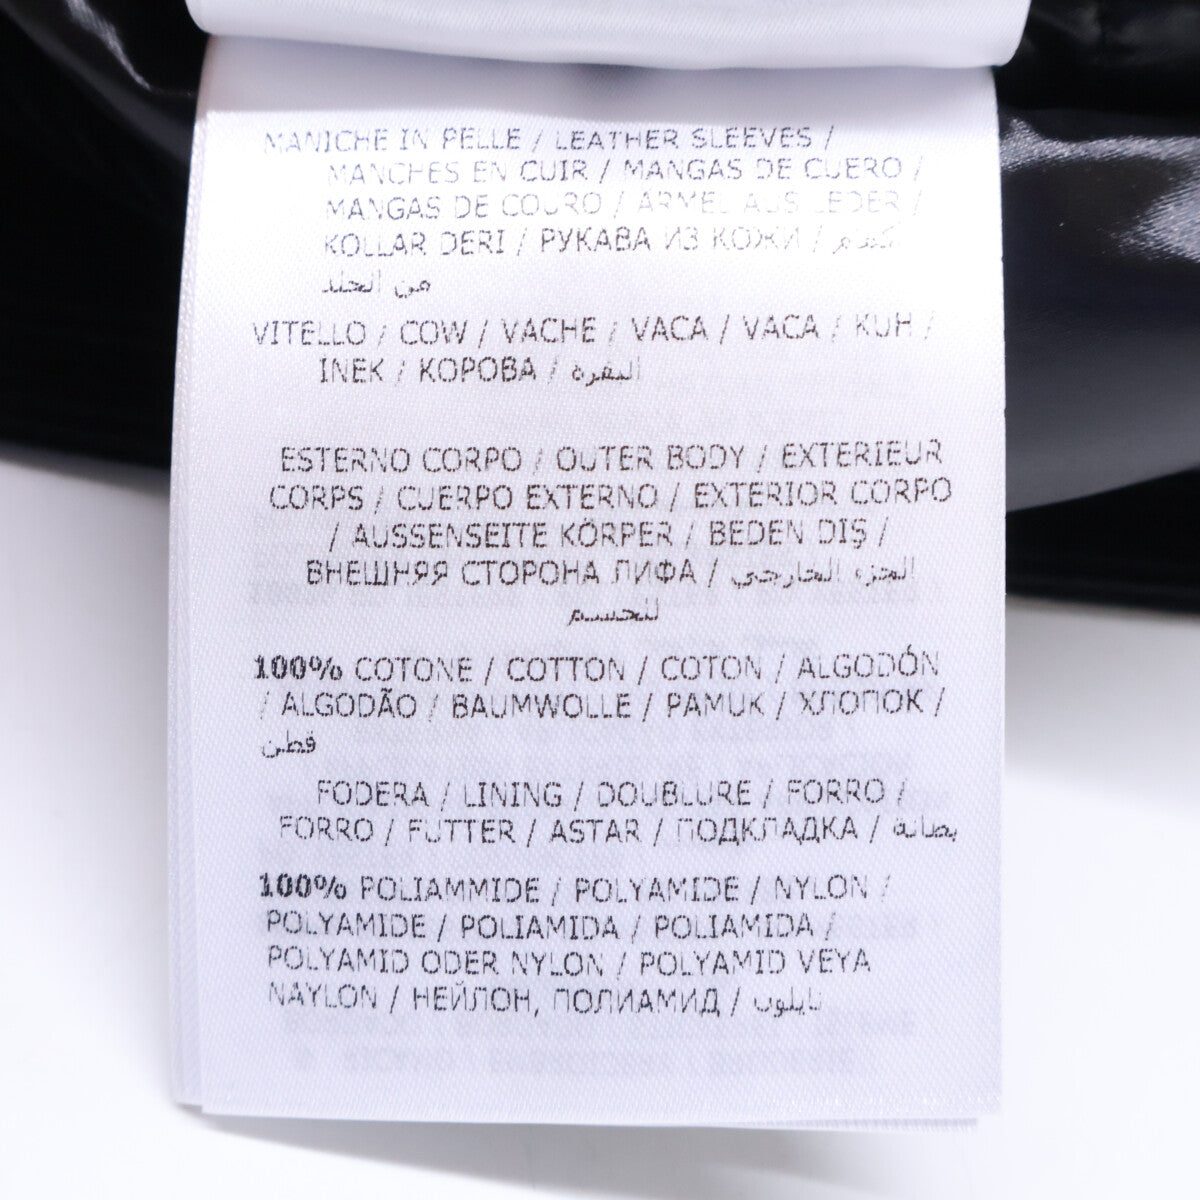 MANICHE IN PELLE / LEATHER SLEEVES /
MANCHES EN CUIR / MANGAS DE CUERO /
MANGAS DE COURO / ARMEL AUS LEDER /
KOLLAR DERI / РУКАВА ИЗ КОЖИ /
من الجلد
VITELLO / COW / VACHE / VACA / VACA / KUH /
INEK / КОРОВА / البقرة
ESTERNO CORPO / OUTER BODY / EXTERIEUR
CORPS / CUERPO EXTERNO / EXTERIOR CORPO
/ AUSSENSEITE KÖRPER / BEDEN DIŞ /
ВНЕШНЯЯ СТОРОНА ЛИФА / الجزء الخارجي
للجسم
100% COTONE / COTTON / COTON / ALGODÓN
/ ALGODÃO / BAUMWOLLE / PAMUK / ХЛОПОК /
قطن
FODERA / LINING / DOUBLURE / FORRO /
FORRO / FUTTER / ASTAR / ПОДКЛАДКА / بطانة
100% POLIAMMIDE / POLYAMIDE / NYLON /
POLYAMIDE / POLIAMIDA / POLIAMIDA /
POLYAMID ODER NYLON / POLYAMID VEYA
NAYLON / НЕЙЛОН, ПОЛИАМИД / نايلون